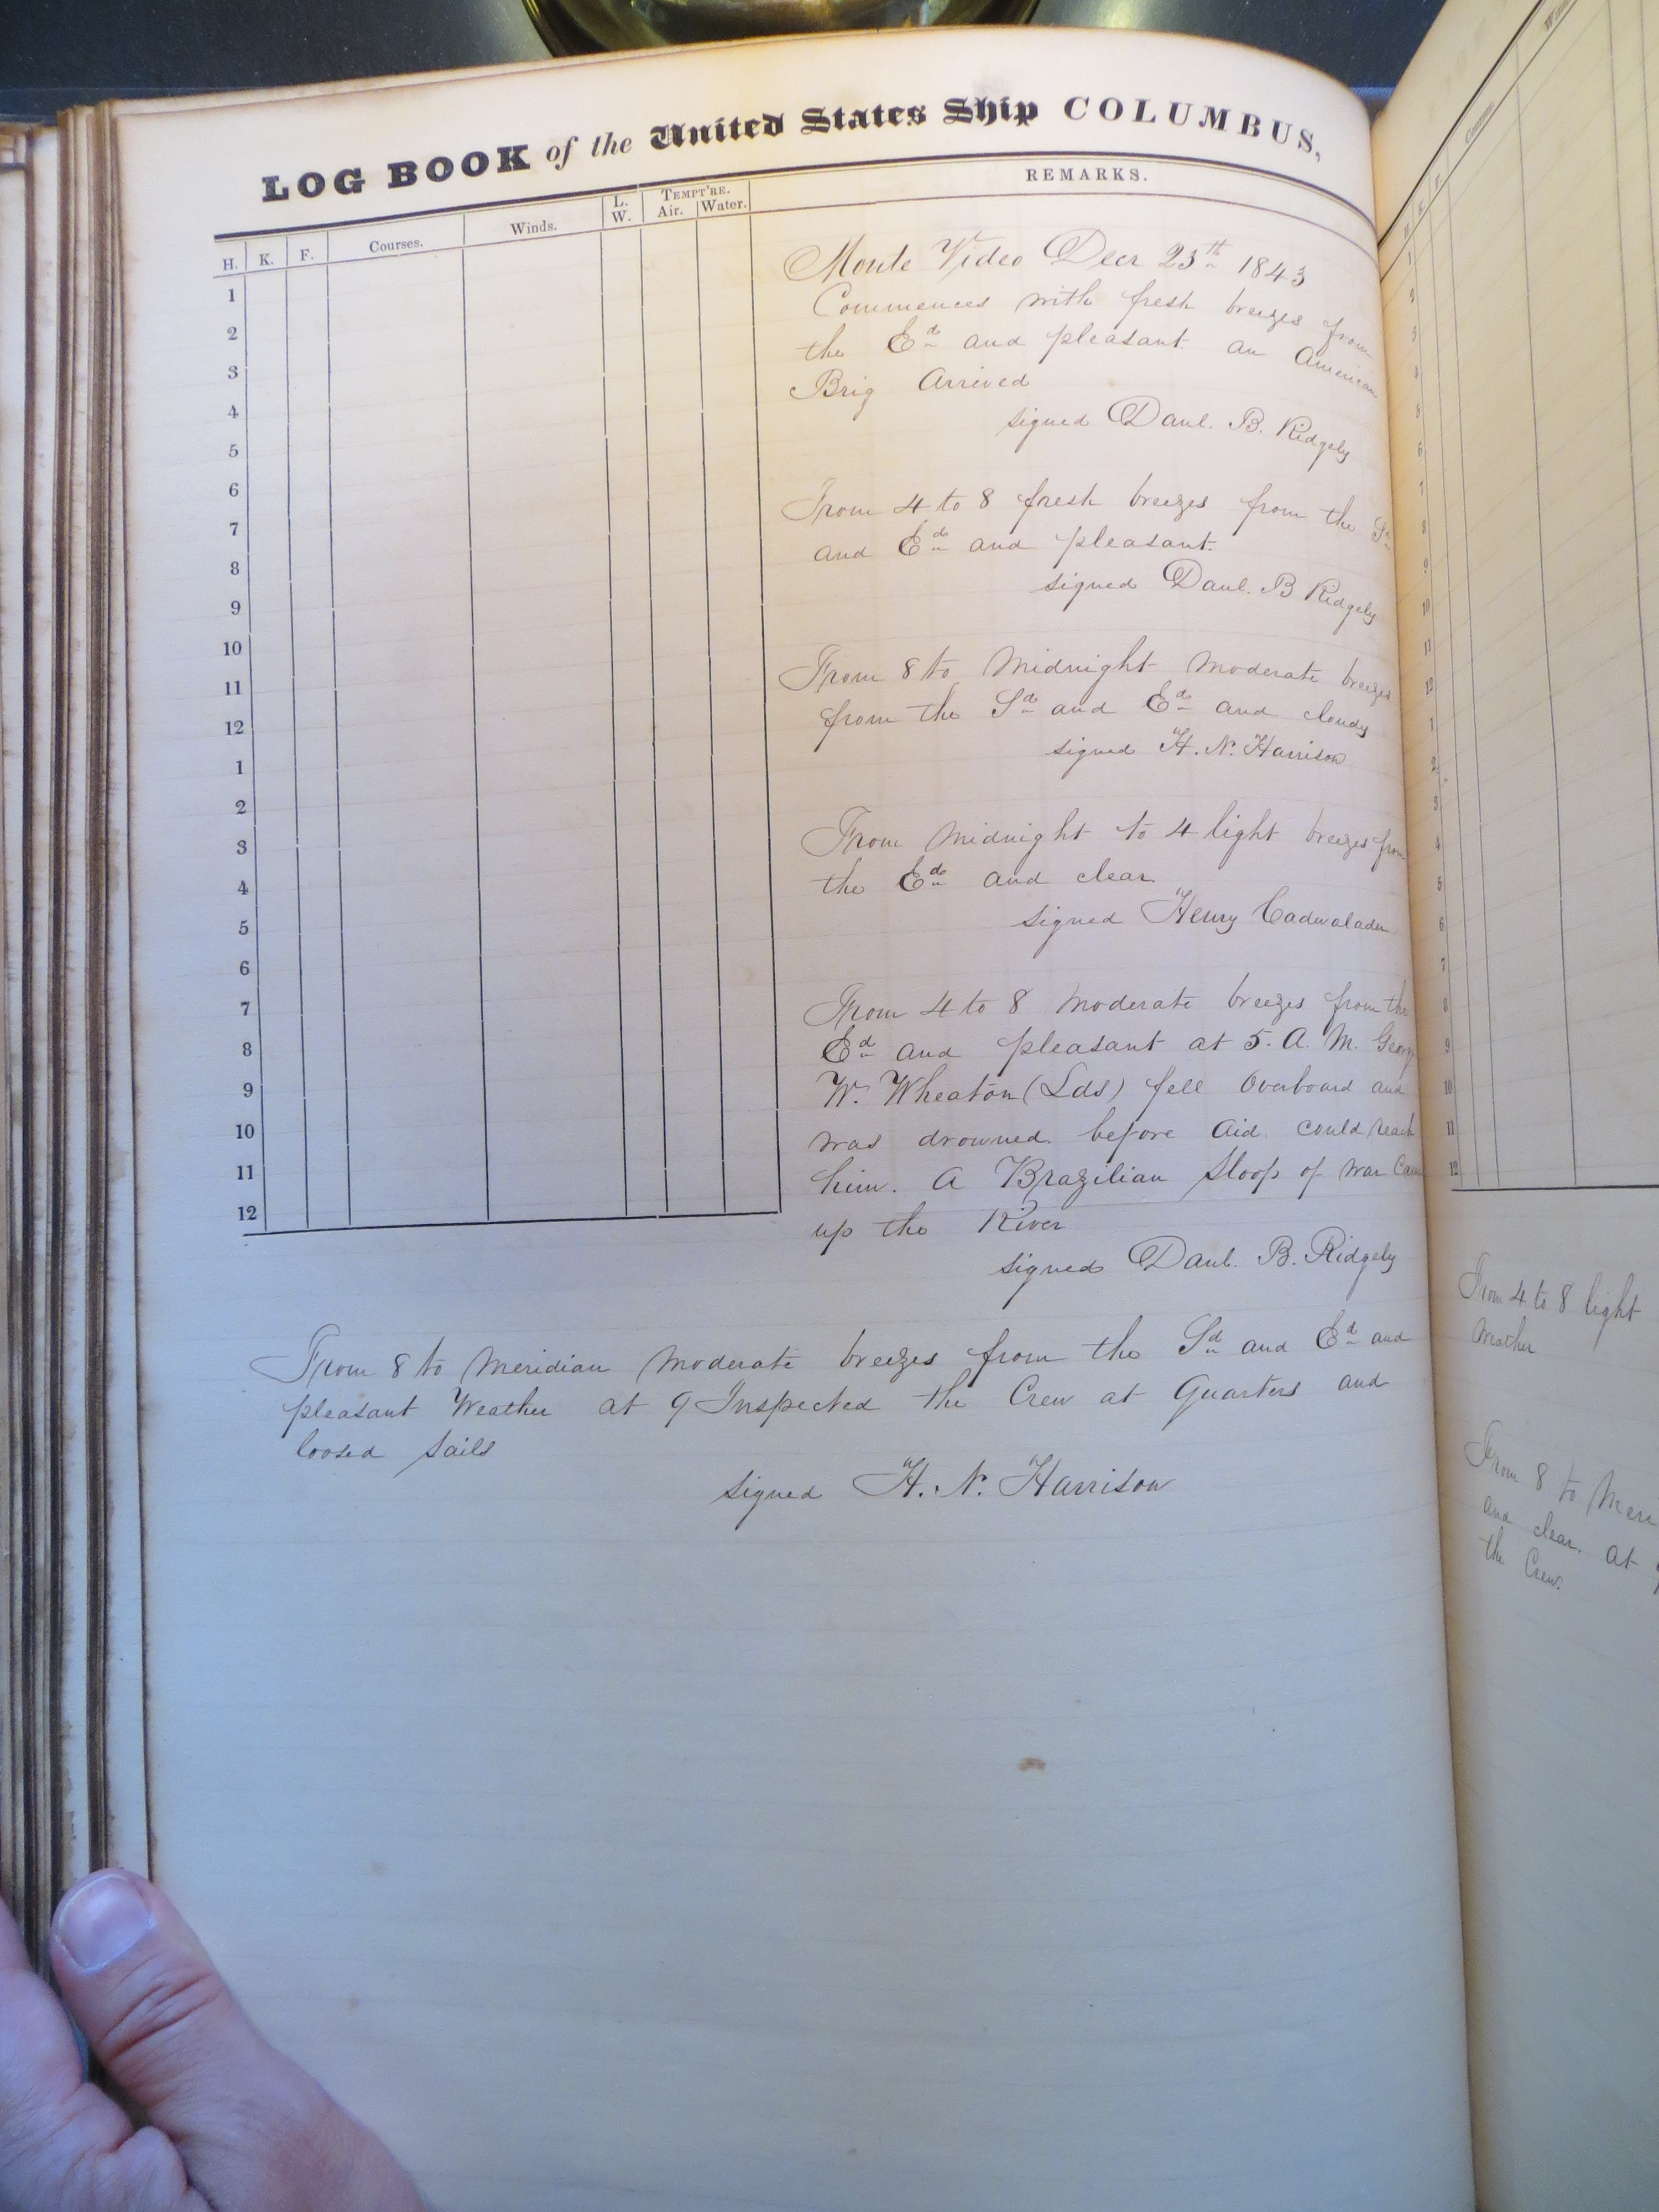 LOG BOOK of the United States Ship COLUMBUS,
H. K. F. Courses. Winds. L. W. TEMPT'RE. Air. Water. REMARKS.
1
2
3
4
5
6
7
8
9
10
11
12
1
2
3
4
5
6
7
8
9
10
11
12
Monte Video Decr 23th 1843
Commences with fresh breezes from
the Ed and pleasant an American
Brig Arrived
signed Danl. B. Ridgely
From 4 to 8 fresh breezes from the Sd
and Ed and pleasant.
signed Danl. B Ridgely
From 8 to Midnight Moderate breezes
from the Sd and Ed and cloudy
signed H. N. Harrison
From Midnight to 4 light breezes from
the Ed and clear.
signed Henry Cadwalader
From 4 to 8 Moderate breezes from the
Ed and pleasant at 5. A. M. Georg
W. Wheaton (Lds) fell Overboard and
was drowned before Aid could reach
him. A Brazilian Sloop of War Cam
up the River
signed Danl. B. Ridgely
From 8 to Meridian Moderate breezes from the Sd and Ed and
pleasant Weather at 9 Inspected the Crew at Quarters and
loosed sails
signed H. N. Harrison
From 4 to 8 light
Weather
From 8 to Meri
and clear. at
the Crew.